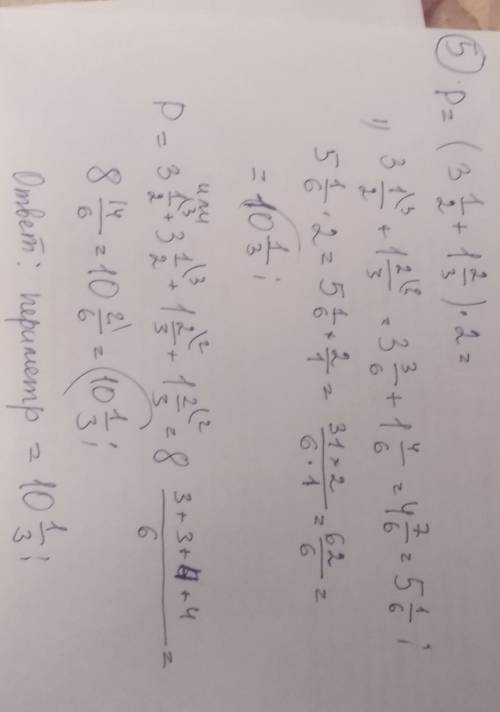 ⑤ P = (3 1/2 + 1 2/3) · 2 =
1) 3 1/2 \3 + 1 2/3 \2 = 3 3/6 + 1 4/6 = 4 7/6 = 5 1/6 ;
5 1/6 · 2 = 5 1/6 × 2/1 = 31 × 2 / 6 · 1 = 62/6 =
= 10 1/3 ;
или
P = 3 1/2 \3 + 3 1/2 \3 + 1 2/3 \2 + 1 2/3 \2 = 8 3 + 3 + 4 + 4 / 6 =
8 14/6 = 10 2/6 = 10 1/3 ;
Ответ: периметр = 10 1/3 ;